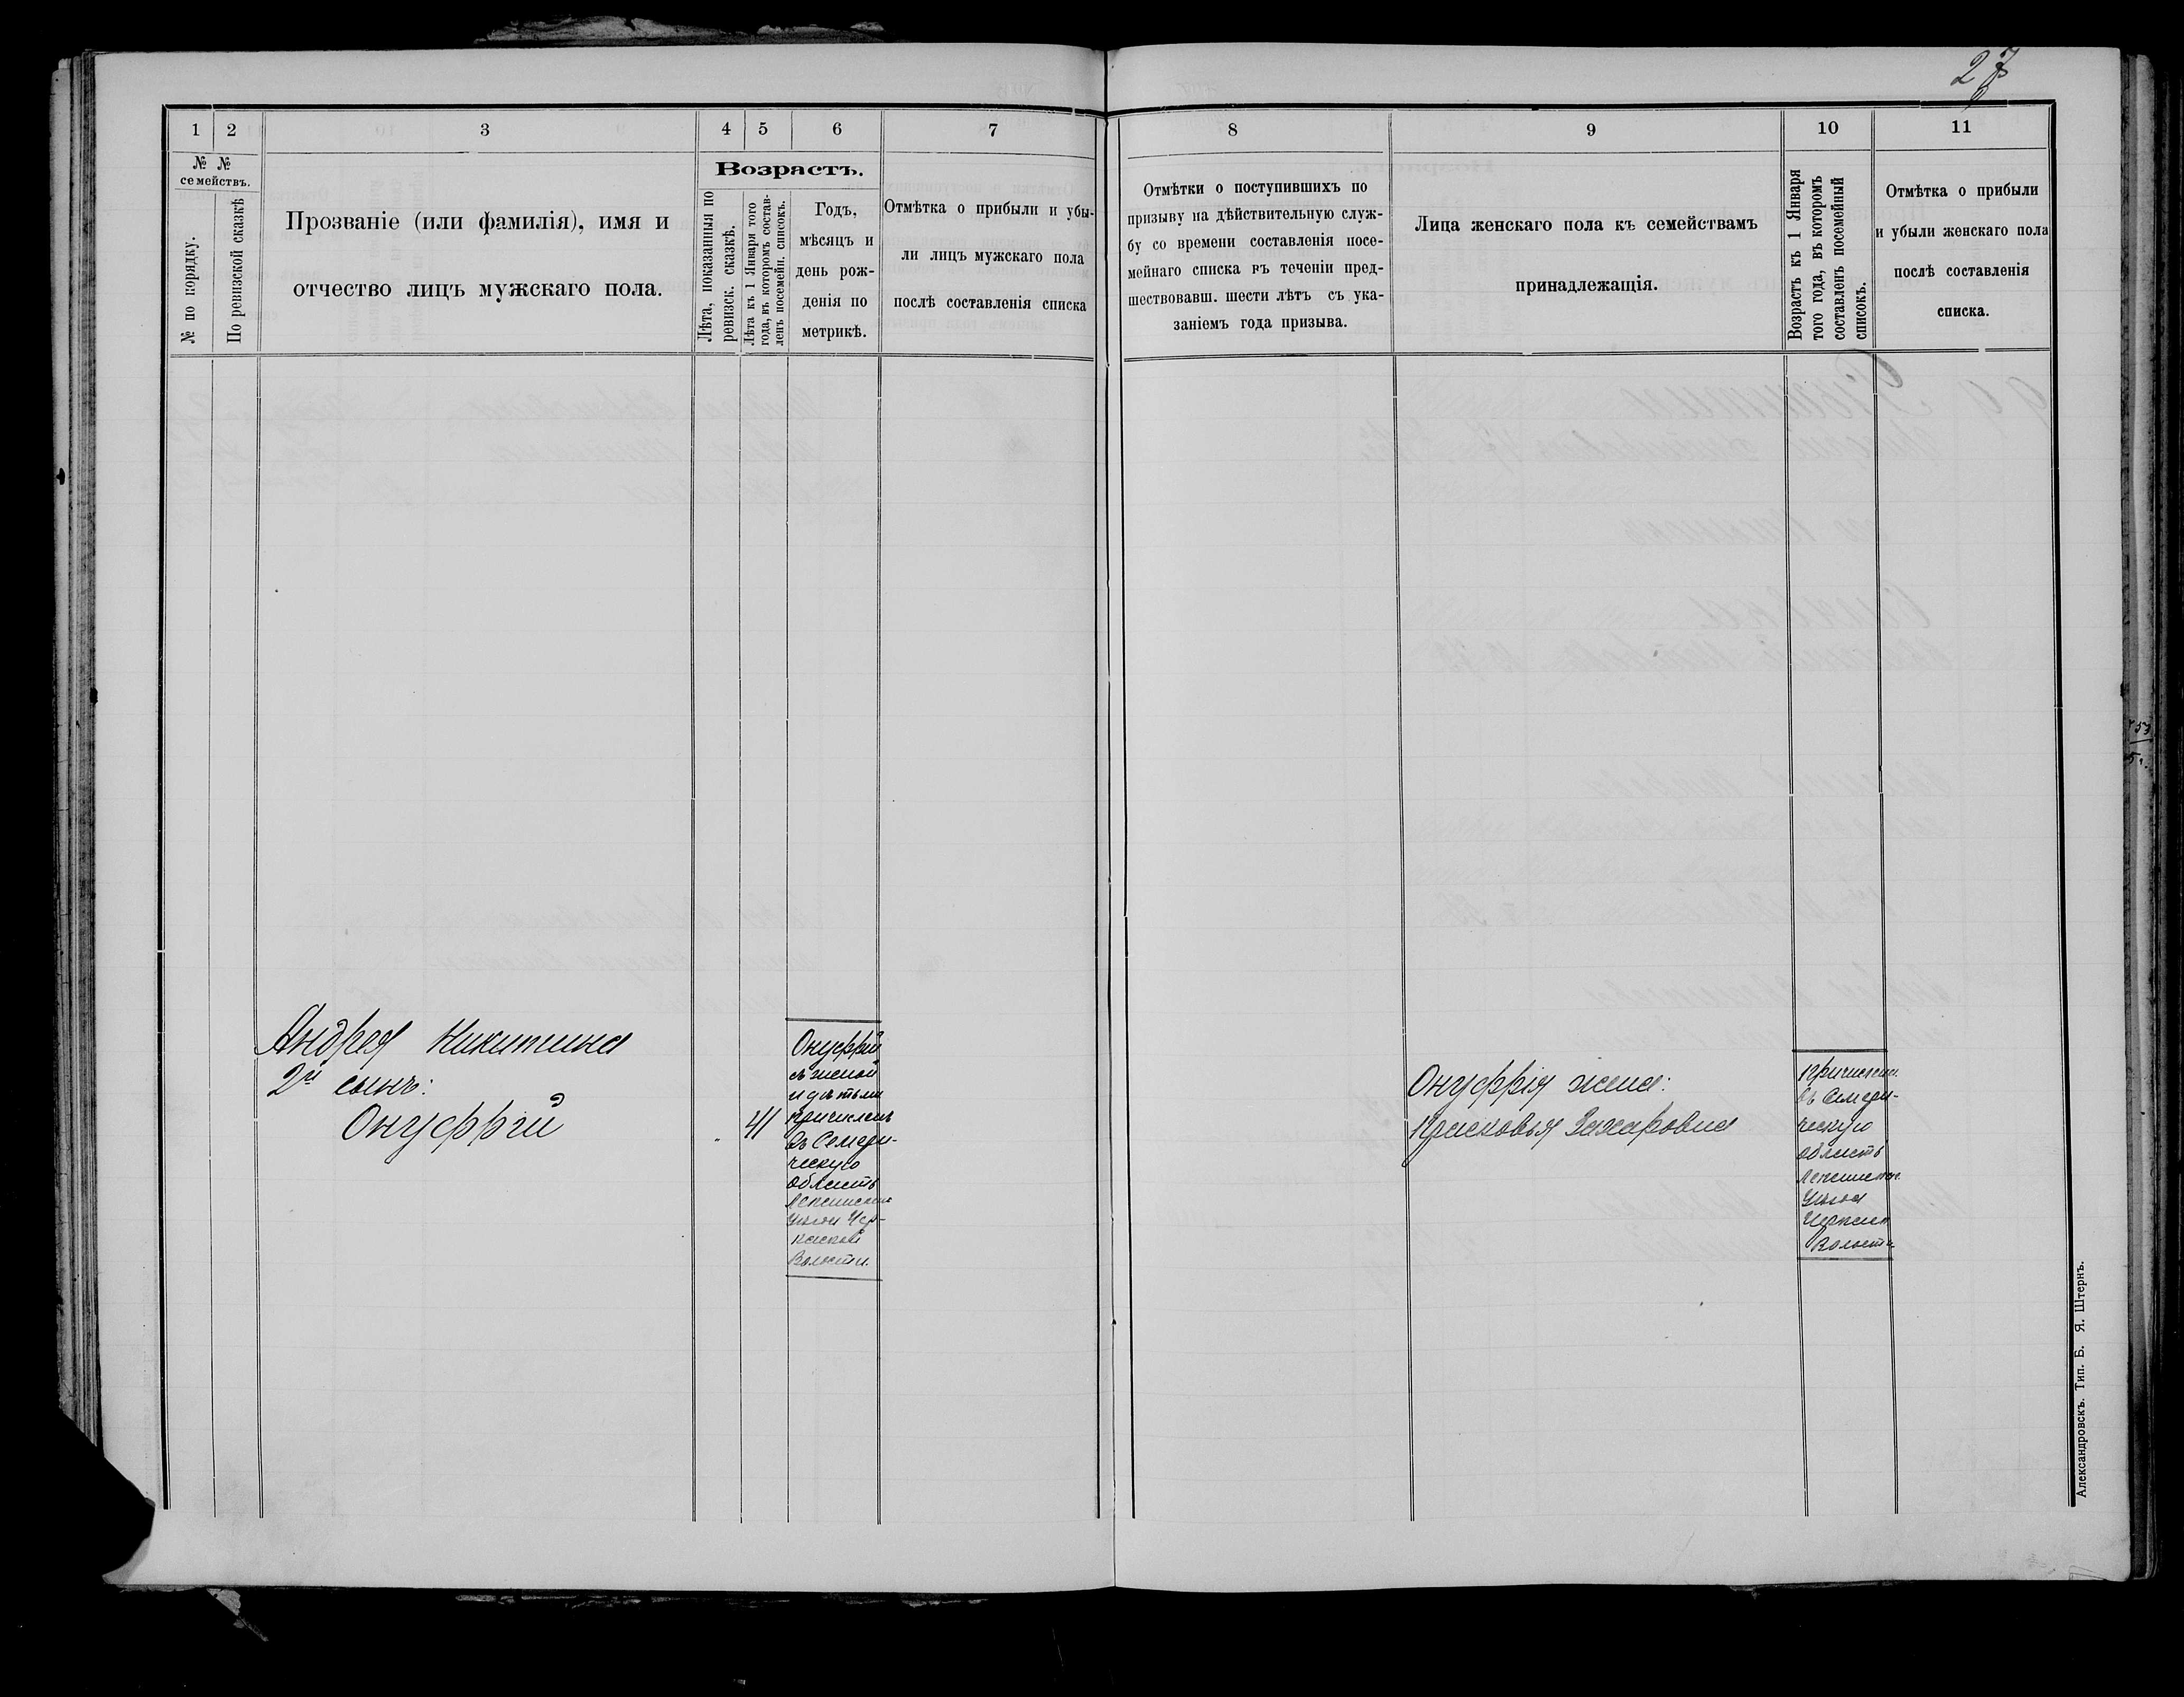 27
1 2 3 4 5 6 7 8 9 10 11
№ №
семействъ.
№ по порядку.
По ревизской сказкѣ
Прозваніе (или фамилія), имя и
отчество лицъ мужскаго пола.
Возрастъ.
Лѣта, показанныя по
ревизск. сказкѣ.
Лѣта къ 1 Января того
года, въ которомъ состав-
ленъ посемейн. списокъ.
Годъ,
мѣсяцъ и
день рож-
денія по
метрикѣ.
Отмѣтка о прибыли и убы-
ли лицъ мужскаго пола
послѣ составленія списка
Отмѣтки о поступившихъ по
призыву на дѣйствительную служ-
бу со времени составленія посе-
мейнаго списка въ теченіи пред-
шествовавш. шести лѣтъ съ ука-
заніемъ года призыва.
Лица женскаго пола къ семействамъ
принадлежащія.
Возрастъ къ 1 Января
того года, въ которомъ
составленъ посемейный
списокъ.
Отмѣтка о прибыли
и убыли женскаго пола
послѣ составленія
списка.
Андрея Никитина
2й сынъ:
Онуфрій
41
Онуфрій
съ женой
и дѣтьми
причисленъ
въ Семери-
ческую
область
Лепсинскаго
Уѣзда Чер-
каской
Волости.
Онуфрія жена:
Прасковья Захаровна
причислена
въ Семери-
ческую
область
Лепсинскаго
Уѣзда
Волости
Александровскъ. Тип. Б. Я. Штернъ.